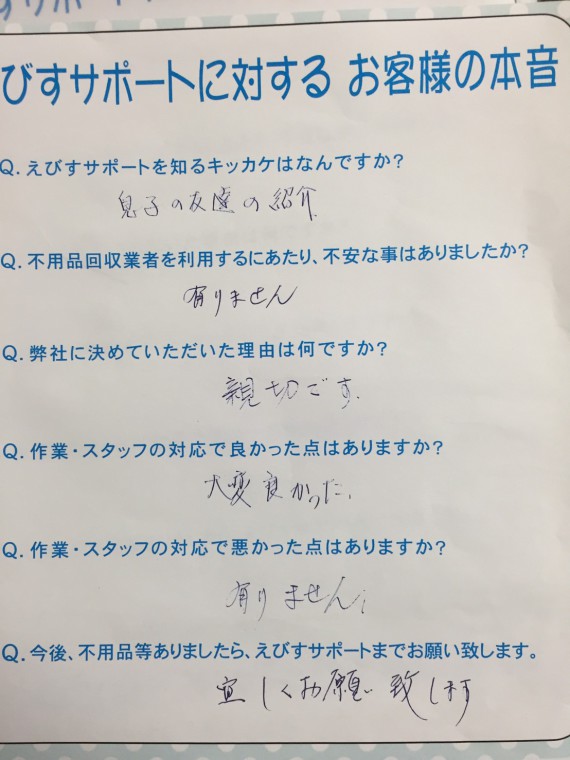 びすサポートに対する お客様の本音
Q. えびすサポートを知るキッカケはなんですか?
息子の友達の紹介
Q. 不用品回収業者を利用するにあたり、不安な事はありましたか?
有りません
Q. 弊社に決めていただいた理由は何ですか?
親切です.
Q. 作業・スタッフの対応で良かった点はありますか?
大変良かった.
Q. 作業・スタッフの対応で悪かった点はありますか?
有りません.
Q. 今後、不用品等ありましたら、えびすサポートまでお願い致します。
宜しくお願い致します